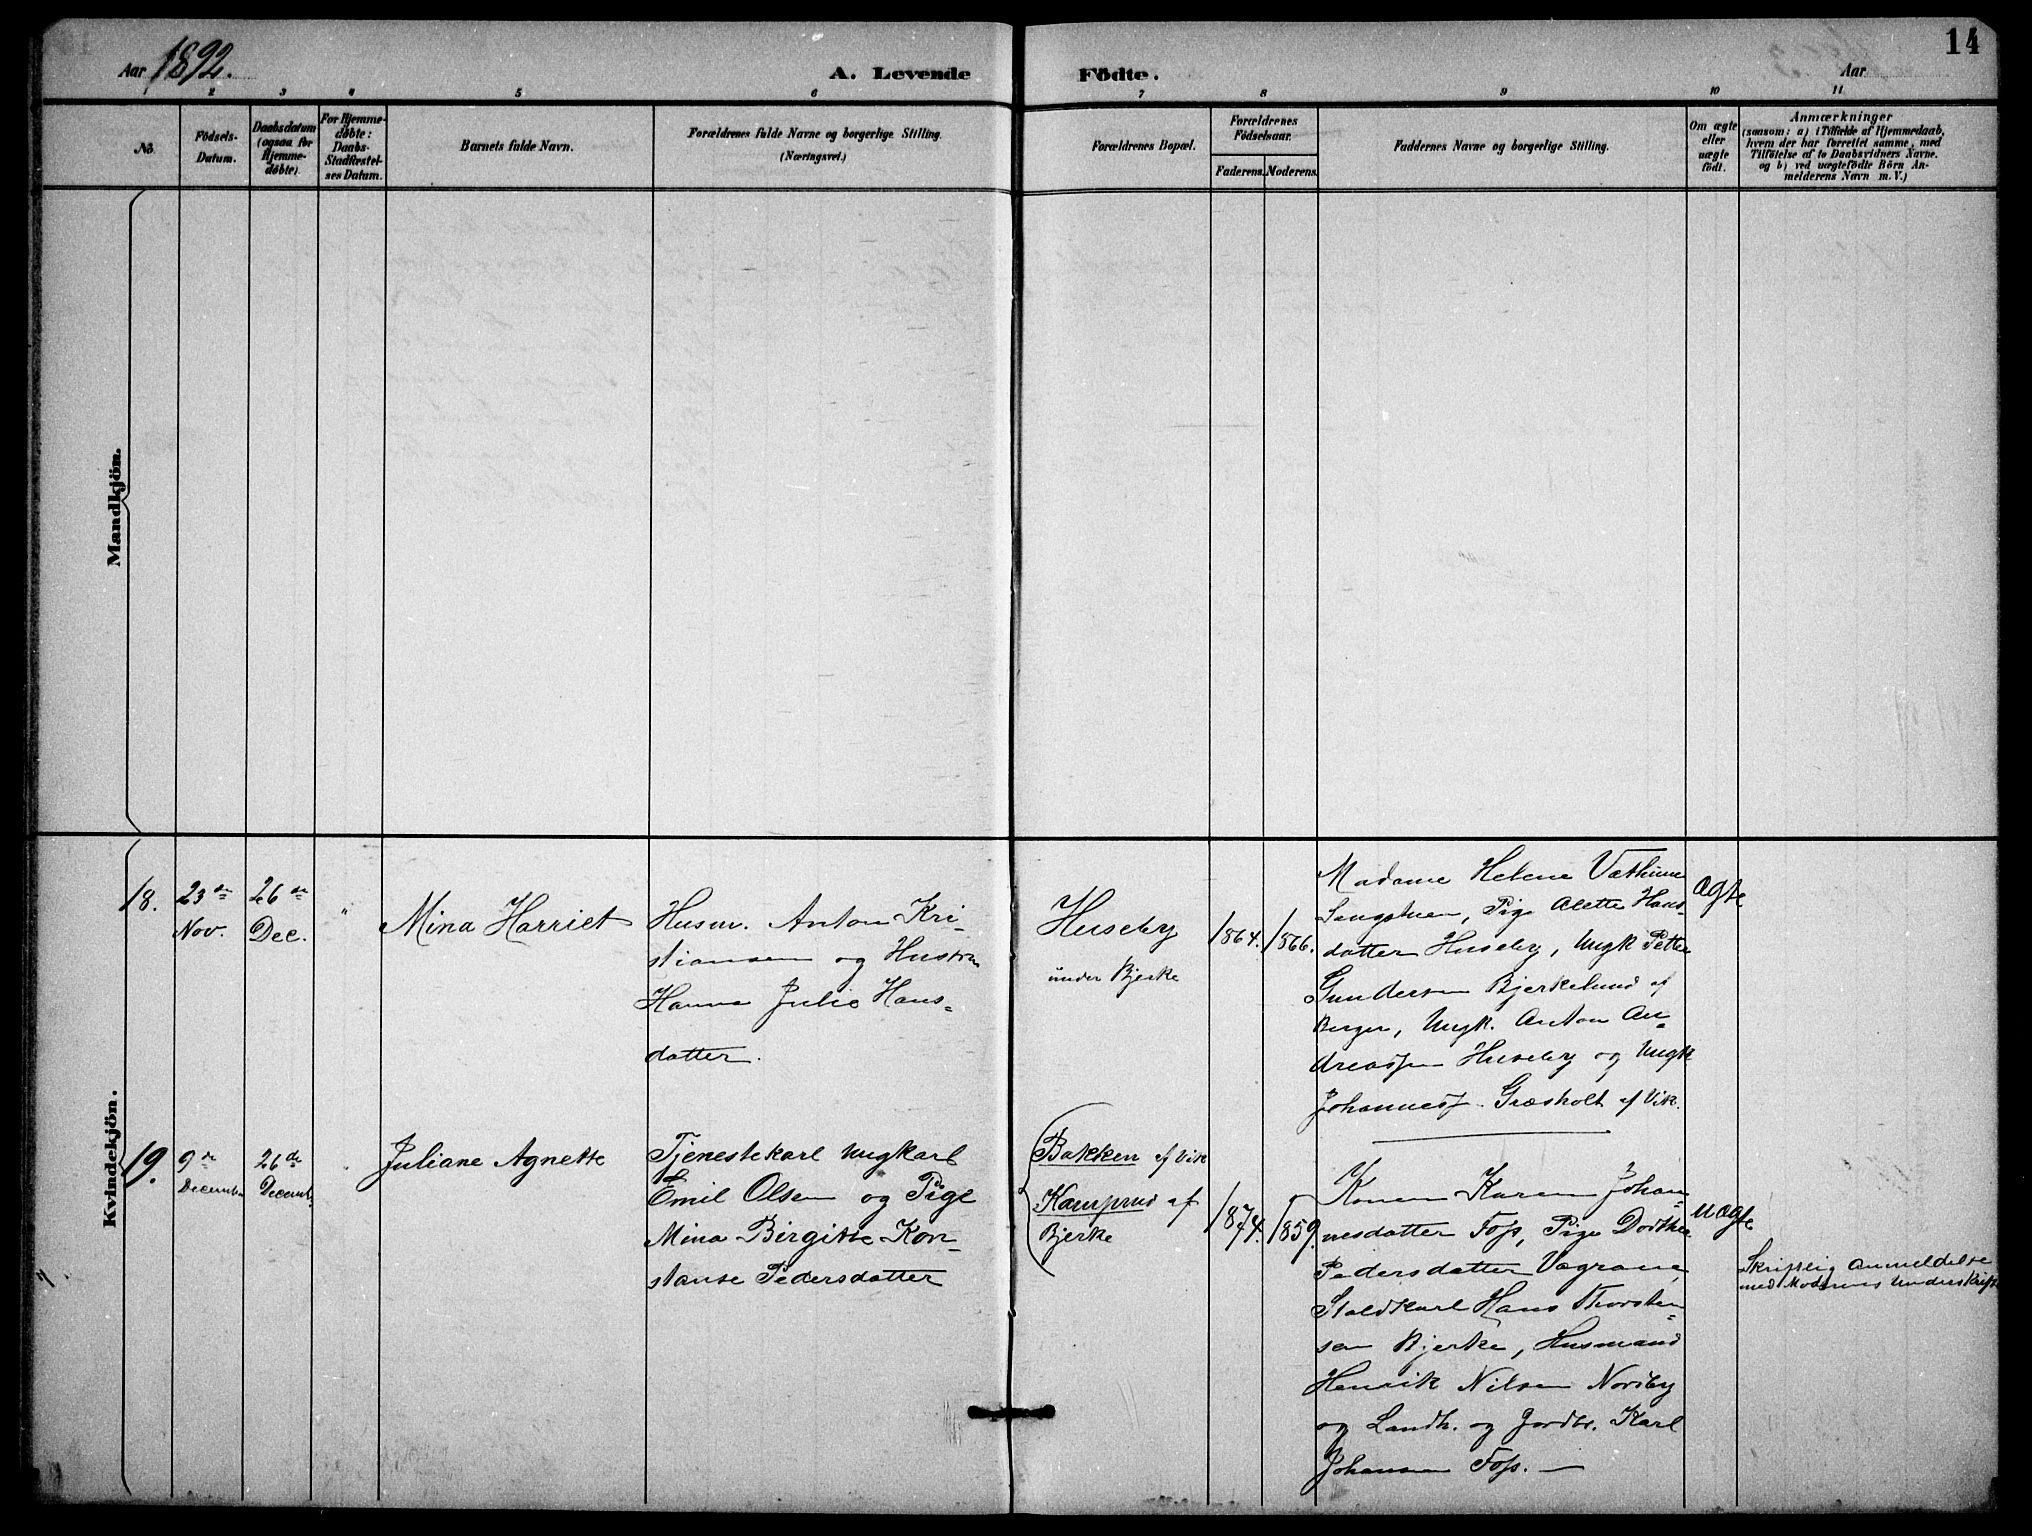 Aar 1892.
A. Levende
Födte.
Aar
14
1
2
3
4
5
6
7
8
9
10
11
No.
Födsels-
Datum.
Daabsdatum
(ogsaa for
Hjemme-
døbte).
For Hjemme-
døbte:
Daabs-
Stadfæstel-
ses Datum.
Barnets fulde Navn.
Forældrenes fulde Navne og borgerlige Stilling.
(Næringsvei.)
Forældrenes Bopæl.
Forældrenes
Födselsaar.
Faderens.
Moderens.
Faddernes Navne og borgerlige Stilling.
Om ægte
eller
uægte
födt.
Anmærkninger
(saasom: a) i Tilfælde af Hjemmedaab,
hvem der har forrettet samme, med
Tilföielse af to Daabsvidners Navne.
og b) ved uægtefödte Börn An-
melderens Navn m. V.)
Mandkjön.
Kvindekjön.
18.
23de
Nov.
26de
Dec.
"
Mina Harriet
Husm. Anton Kri-
stiansen og Hustru
Hanna Julie Hans-
datter.
Huseby
under Bjerke
1864.
1866.
Madame Helene
Pige Alette Hans-
datter Huseby, Ungk. Petter
Gundersen Bjerkelund af
Berger, Ungk. Anton An-
dreassen Huseby og Ungk
Johannes Græsholt af Vik.
Ægte
19.
9de
Decemb.
26de
Decemb.
Juliane Agnette
Tjenestekarl Ungkarl
Emil Olsen og Pige
Mina Birgitte Kon-
stanse Pedersdatter
Bakken af Vik
Kamprud af
Bjerke
1874.
1859.
Konen Karen Johan-
nesdatter Foss, Pige Dorthea
Pedersdatter
Staldkarl Hans Thorsten-
sen Bjerke, Husmand
Henrik Nilsen Nordby
og Landh. og Jordbr. Karl
Johansen Foss.
uægte
Skriftlig Anmeldelse
med Moderens Underskrift